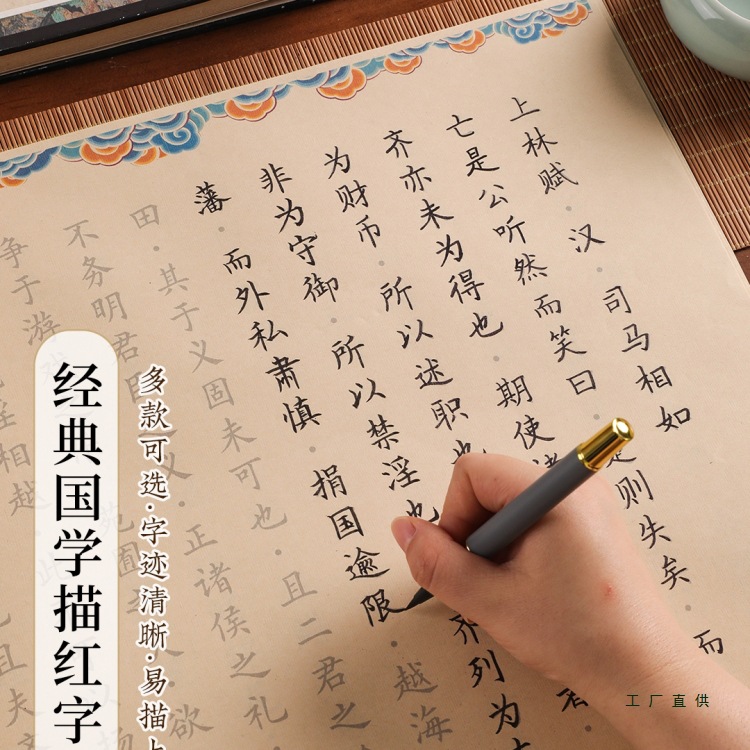 上林赋·汉·司马相如
亡是公听然而笑曰·则失矣·而
齐亦未为得也·期使诸
为财币·所以述职也
非为守御·所以禁淫也 齐列为东
藩·而外私肃慎·捐国逾限·越海
田·其于义固未可也·且二君之
不务明君臣 义·正诸侯之礼
争于游 苑囿 欲
相越 以扬
且夫齐
多款可选·字迹清晰·易描
经典国学描红字
工厂直供